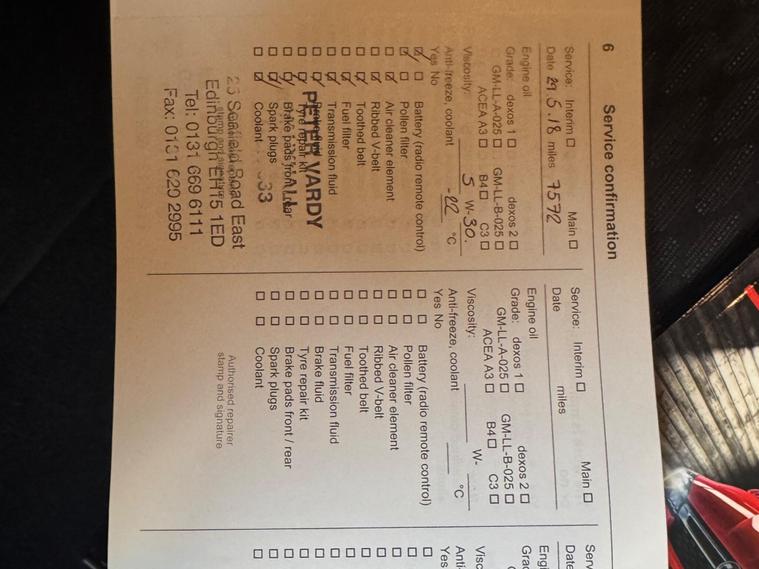 6 Service confirmation
Service: Interim ☐ Main ☐
Date 29.5.18 miles 7572
Engine oil
Grade: dexos 1 ☐ dexos 2 ☐
GM-LL-A-025 ☐ GM-LL-B-025 ☐
ACEA A3 ☐ B4 ☐ C3 ☐
Viscosity: 5 W-30.
Anti-freeze, coolant -22 °C
Yes No
Battery (radio remote control)
Pollen filter
Air cleaner element
Ribbed V-belt
Toothed belt
Fuel filter
Transmission fluid
Brake fluid
Tyre repair kit
Brake pads front / rear
Spark plugs
Coolant
PETER VARDY
VAUXHALL
33
Road East
Edinburgh EH15 1ED
Tel: 0131 669 6111
Fax: 0131 620 2995
Service: Interim ☐ Main ☐
Date miles
Engine oil
Grade: dexos 1 ☐ dexos 2 ☐
GM-LL-A-025 ☐ GM-LL-B-025 ☐
ACEA A3 ☐ B4 ☐ C3 ☐
Viscosity: W-
Anti-freeze, coolant °C
Yes No
☐ ☐ Battery (radio remote control)
☐ ☐ Pollen filter
☐ ☐ Air cleaner element
☐ ☐ Ribbed V-belt
☐ ☐ Toothed belt
☐ ☐ Fuel filter
☐ ☐ Transmission fluid
☐ ☐ Brake fluid
☐ ☐ Tyre repair kit
☐ ☐ Brake pads front / rear
☐ ☐ Spark plugs
☐ ☐ Coolant
Authorised repairer
stamp and signature
Serv
Date
Engi
Grad
Visc
Anti-
Yes